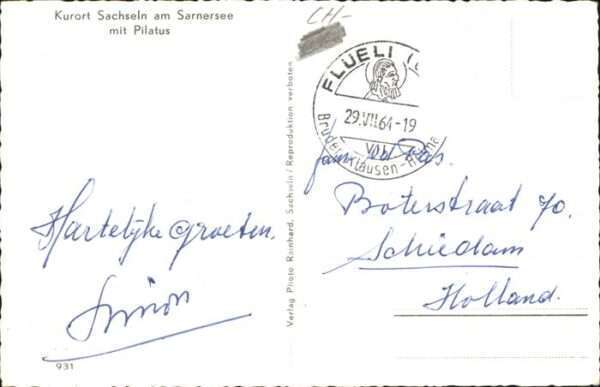 Kurort Sachseln am Sarnersee
mit Pilatus
CH-
FLÜELI
29.VII.64-19
Bruder-Klausen-
Verlag Photo Reinhard, Sachseln / Reproduktion verboten
Hartelijke groeten.
Simon
fam. vd Pas.
Boterstraat
Schiedam
Holland.
931